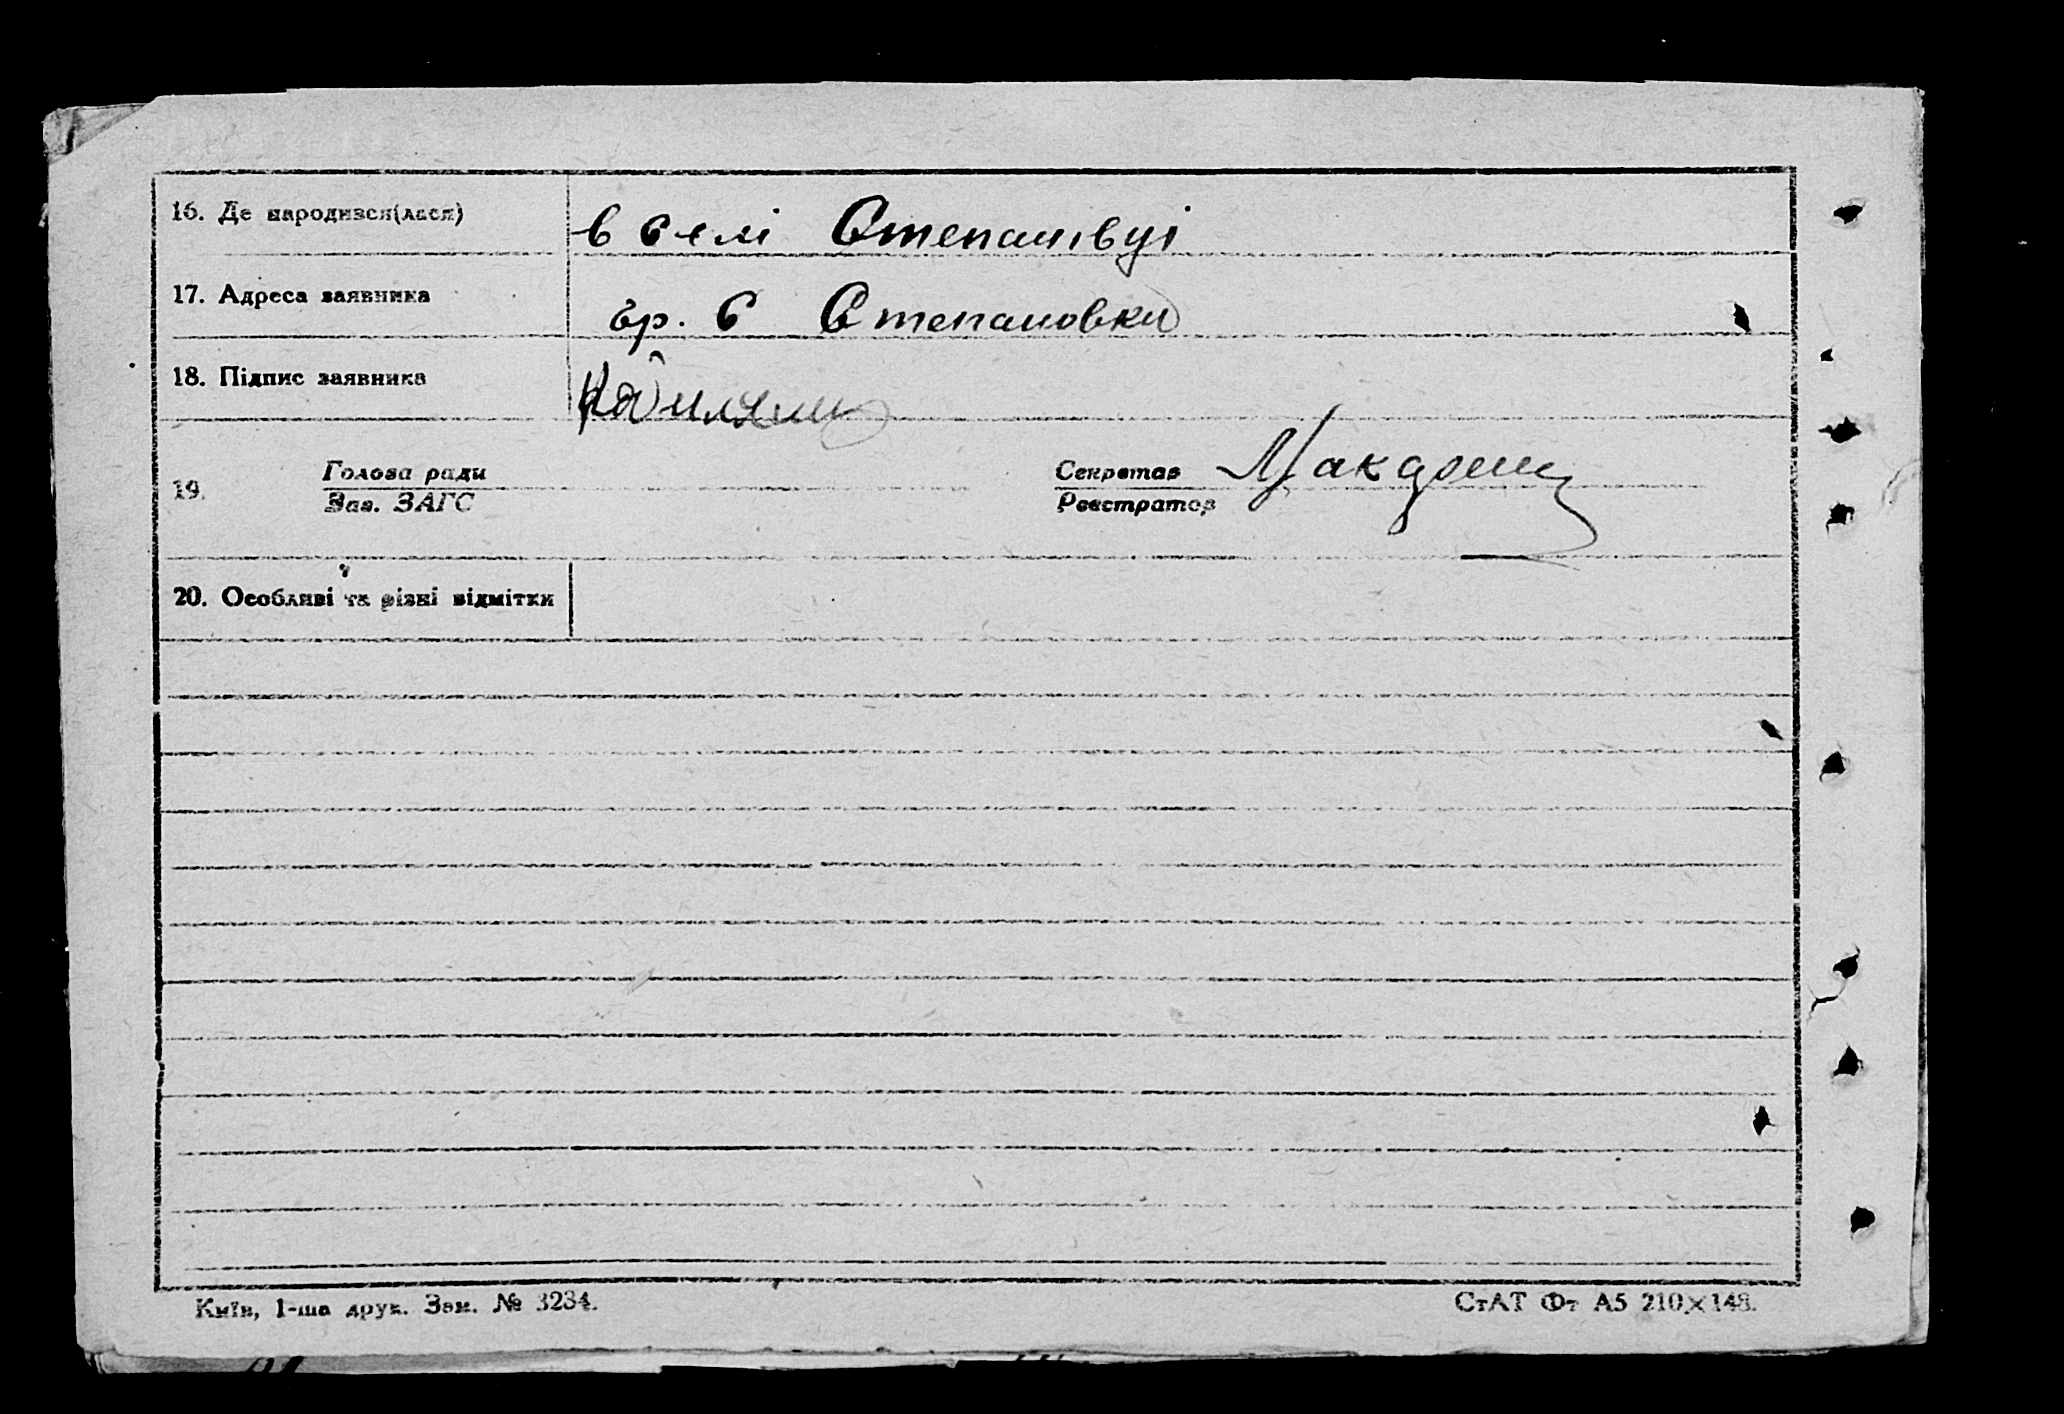 16. Де народився(лася)
в селі Степанівці
17. Адреса заявника
гр. с Степановки
18. Підпис заявника
19.
Голова ради
Зав. ЗАГС
Секретар
Реєстратор
20. Особливі та різні відмітки
Київ, 1-ша друк. Зам. № 3234.
СтАТ Фт А5 210×148.